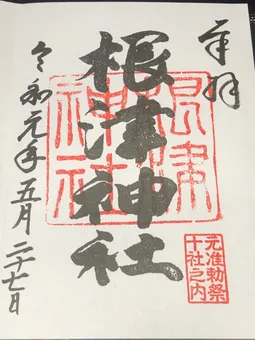 奉拝
根津神社
根津神社
元准勅祭
十社之内
令和元年五月二十七日